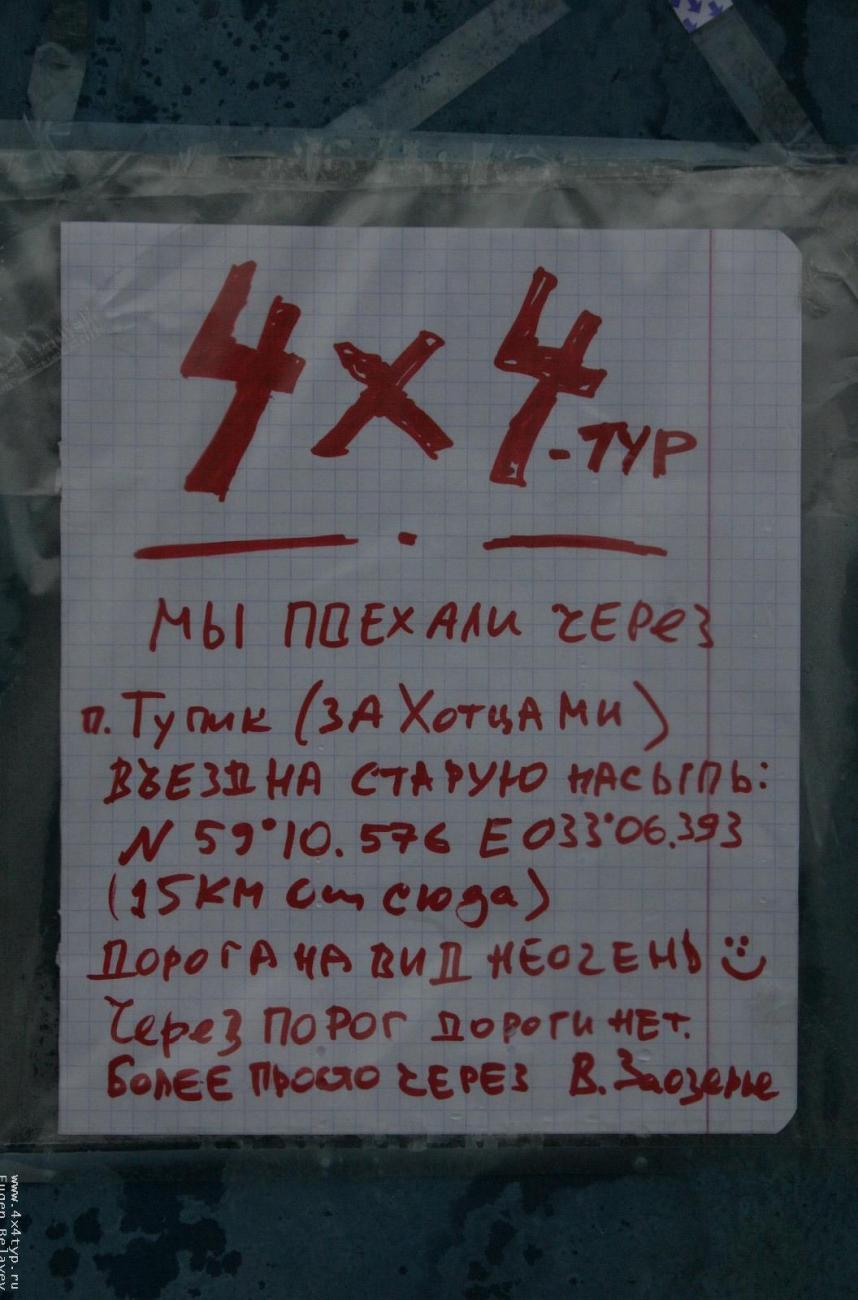 4x4-ТУР
МЫ ПОЕХАЛИ ЧЕРЕЗ
п. Тупик (ЗА ХОТЦАМИ)
ВЪЕЗД НА СТАРУЮ НАСЫПЬ:
N 59°10.576 E 033°06.393
(15КМ от сюда)
ДОРОГА НА ВИД НЕОЧЕНЬ
Через ПОРОГ ДОРОГИ НЕТ.
БОЛЕЕ ПРОСТО ЧЕРЕЗ В. Заозерье
www.4x4typ.ru
Eugen Belayev